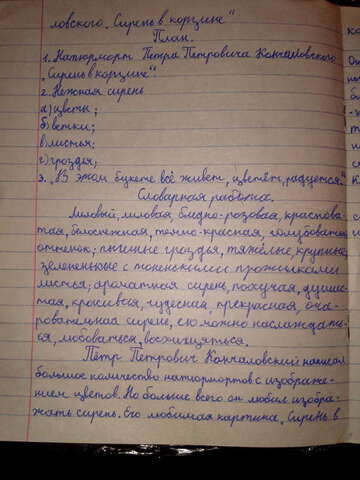 ловского „Сирень в корзине"
План.
1. Натюрморт Петра Петровича Кончаловского
„Сирень в корзине".
2. Нежная сирень
а) цветы;
б) ветки;
в) листья;
г) гроздья;
3. „В этом букете всё живёт, цветёт, радуется."
Словарная работа.
Лиловый, лиловая, бледно-розовая, краснова-
тая, белоснежная, тёмно-красная, голубоватый
оттенок; пышные гроздья, тяжёлые, крупные,
зелененькие с тоненькими прожилками
листья; ароматная сирень, пахучая, души-
тая, чудесная, прекрасная, оча-
ровательная сирень, ею можно наслаждать-
ся, любоваться, восхищаться.
Пётр Петрович Кончаловский написал
большое количество натюрмортов с изображе-
нием цветов. Но больше всего он любил изобра-
жать сирень. Его любимая картина „Сирень в